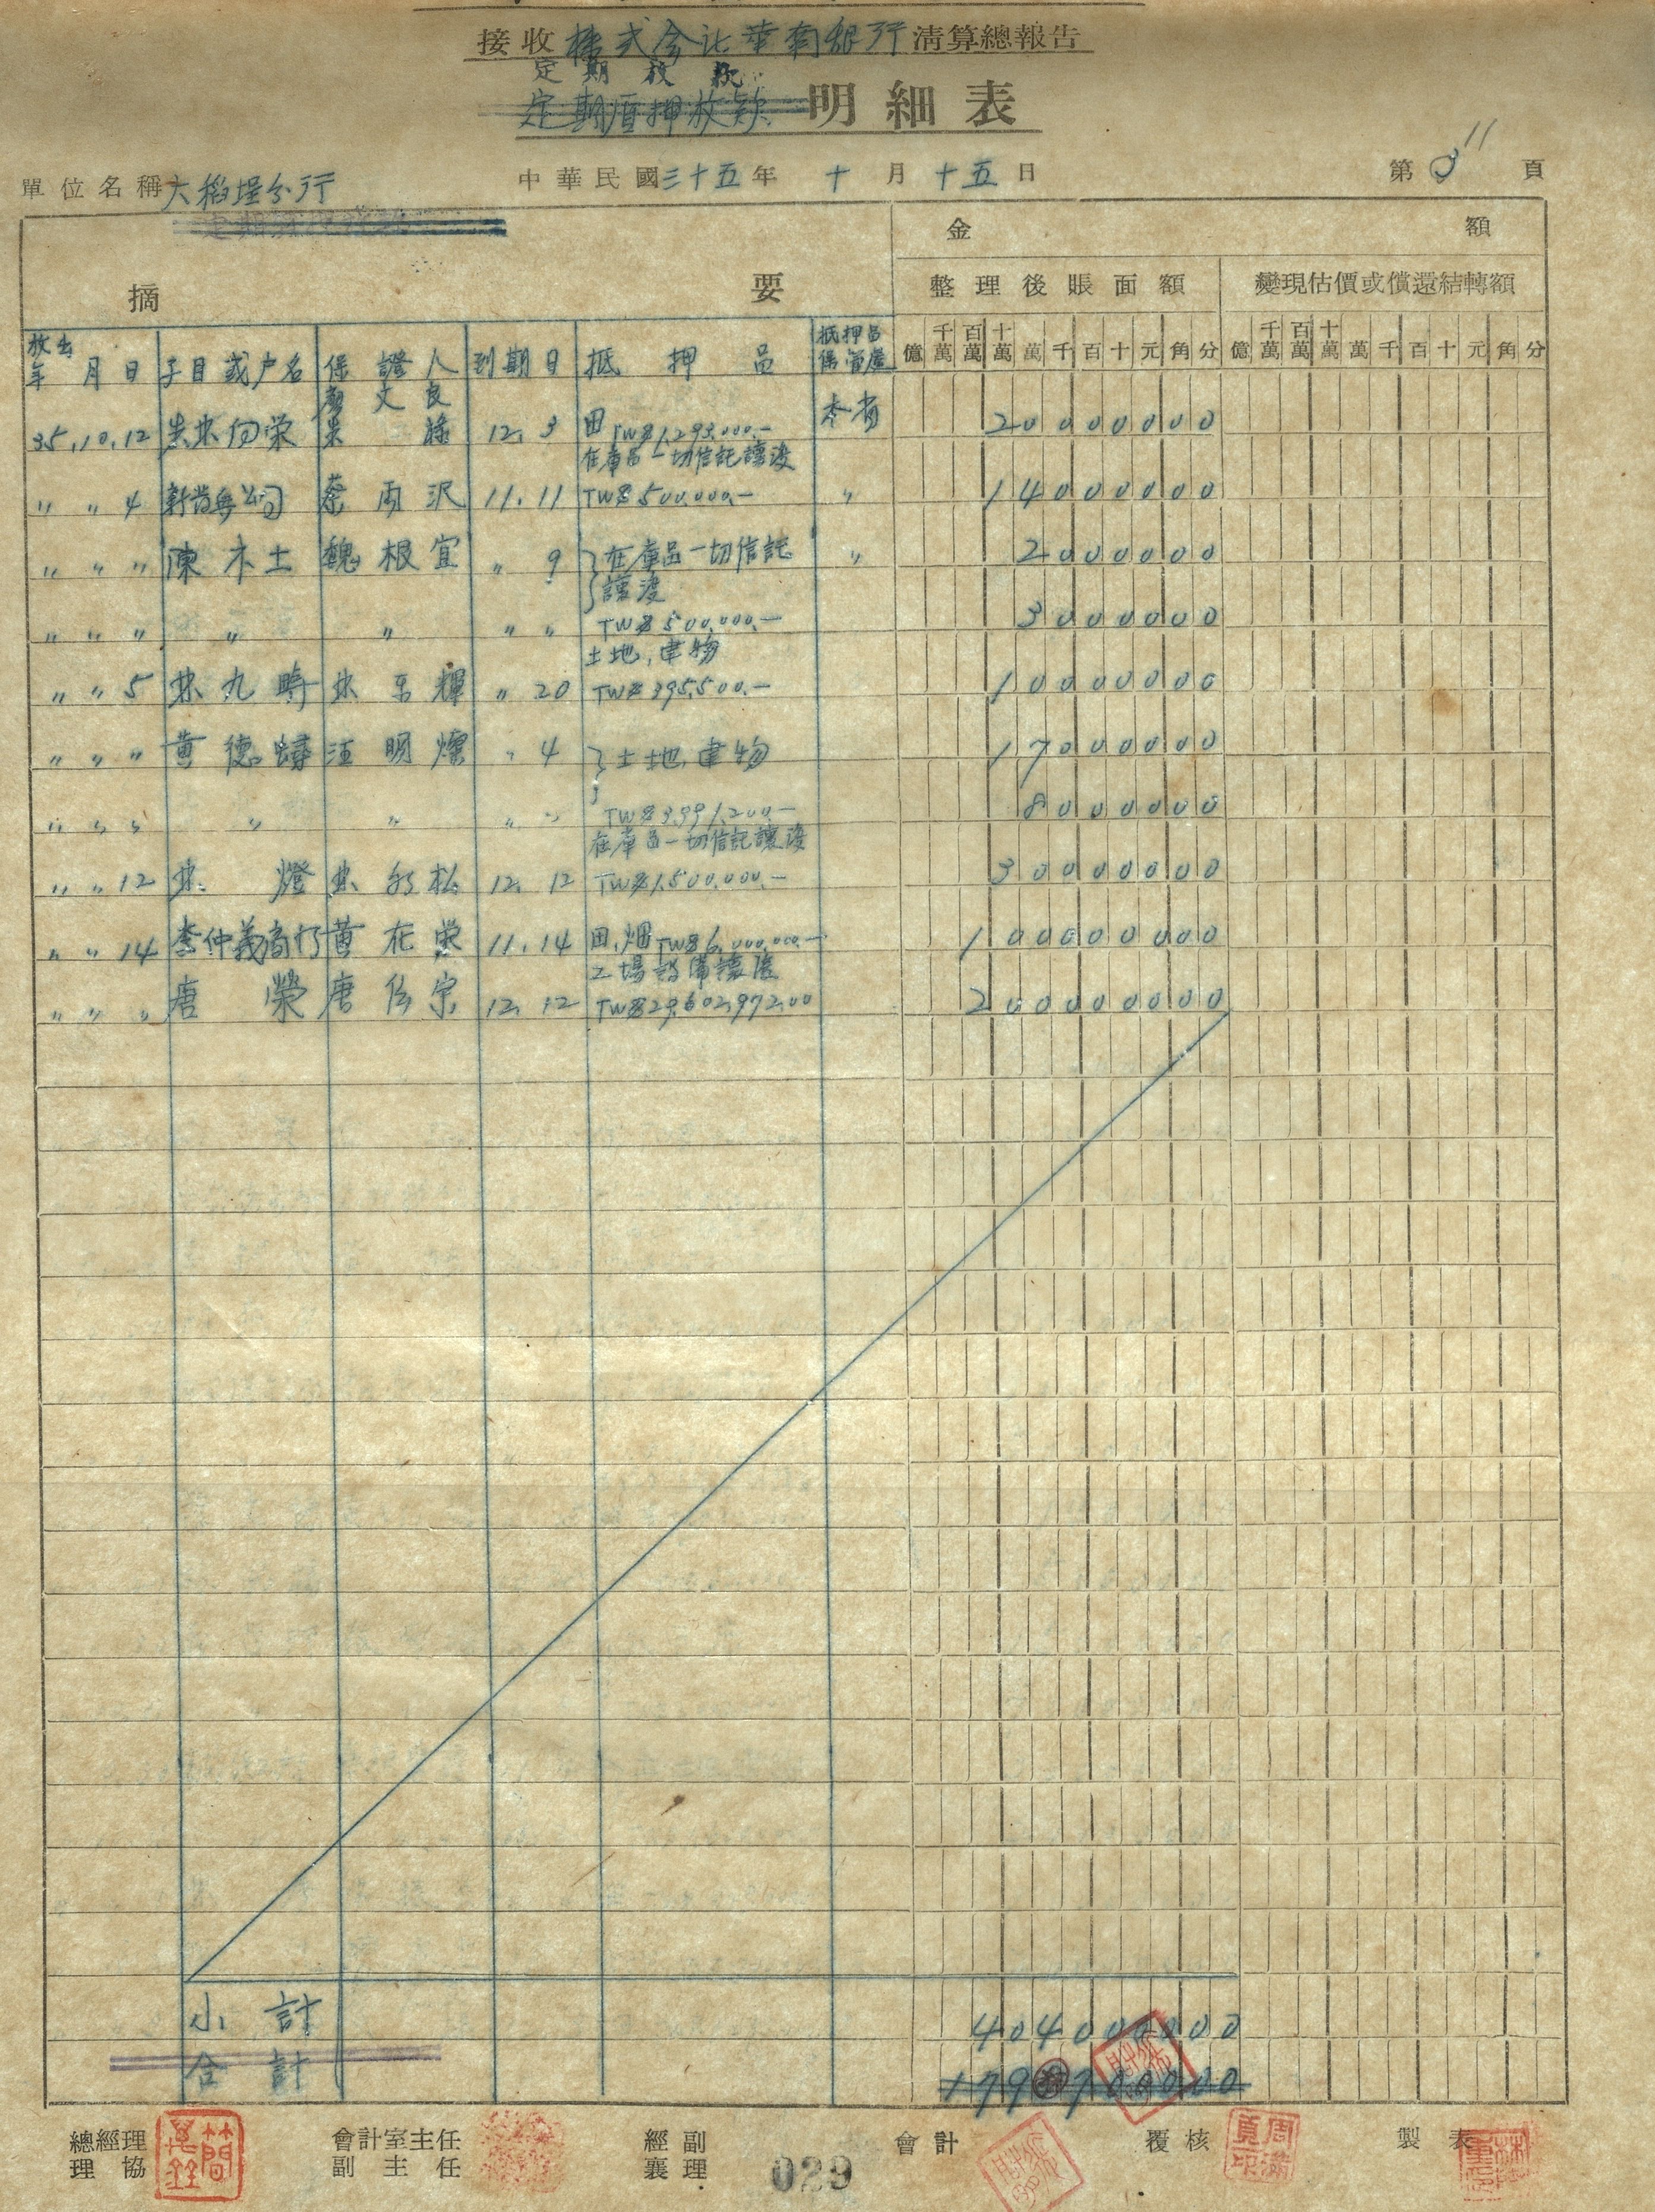 接收株式会社華南銀行清算總報告
定期放款
定期質押放款 明細表
單位名稱 大稻埕分行 中華民國三十五年 十 月 十五 日 第 3 11 頁
金 額
摘 要 整理後賬面額 變現估價或償還結轉額
放出年月日 子目或户名 保證人 到期日 抵押品 抵押品保管處 億 千萬 百萬 十萬 萬 千 百 十 元 角 分 億 千萬 百萬 十萬 萬 千 百 十 元 角 分
文良
35.10.12 12.3 田 TW$1,293,000.- 本省 20000000
在庫品一切信託讓渡
〃 〃 4 蔡雨沢 11.11 TW$500,000.- 〃 14000000
〃 〃 〃 陳木土 魏根宜 〃 9 在庫品一切信託 〃 2000000
讓渡
〃 〃 〃 〃 〃 〃 〃 TW$500,000.- 3000000
土地,建物
〃 〃 5 林九時 〃 20 TW$395,500.- 10000000
〃 〃 〃 黄德 汪明燦 〃 4 土地,建物 17000000
〃 〃 〃 〃 〃 〃 〃 TW$3,991,200.- 8000000
在庫品一切信託讓渡
〃 〃 12 林燈 12.12 TW$1,500,000.- 30000000
〃 〃 14 李仲義商行 黄在榮 11.14 田,畑 TW$6,000,000.- 100000000
工場設備讓渡
〃 〃 〃 唐榮 唐傳宗 12.12 TW$29,602,972.00 200000000
小計 404000000
合計
總經理 會計室主任 經副 會計 覆核 製表
理協 副主任 襄理
029